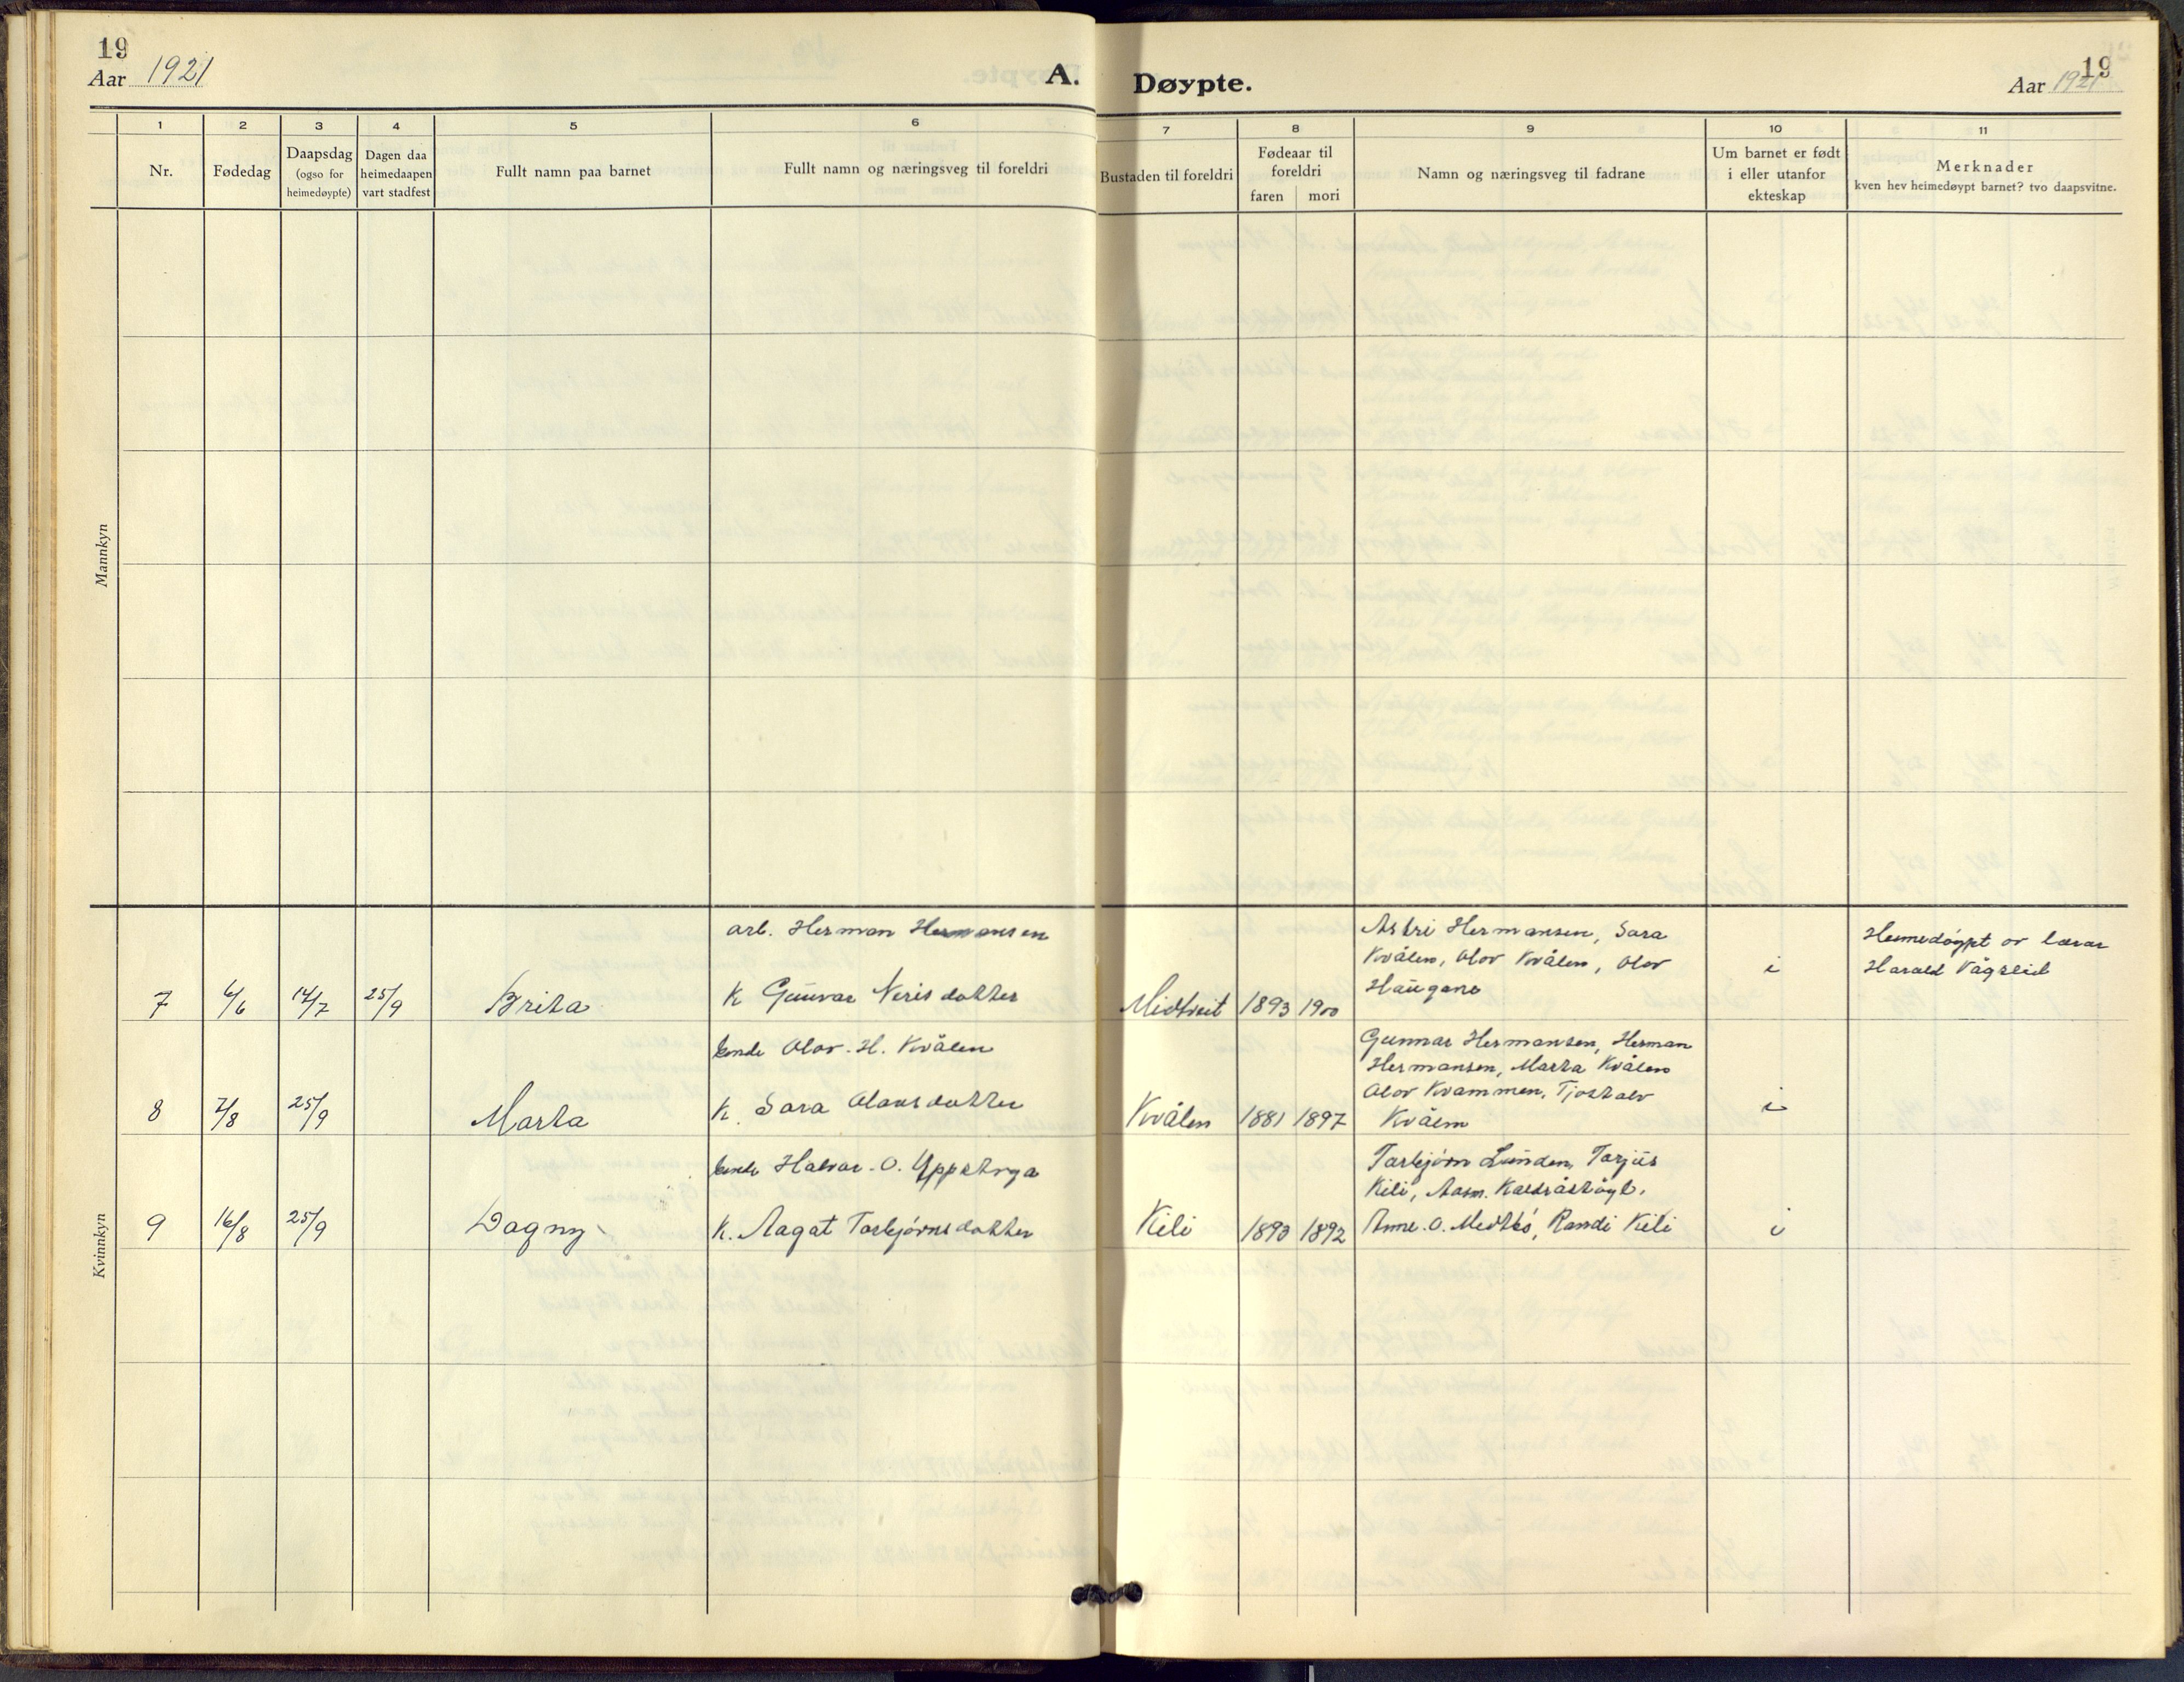 19
Aar 1921
A.
Døypte.
19
Aar 1921
1
2
3
4
5
6
7
8
9
10
11
Nr.
Fødedag
Daapsdag
(ogso for
heimedøypte)
Dagen daa
heimedaapen
vart stadfest
Fullt namn paa barnet
Fullt namn og næringsveg til foreldri
Bustaden til foreldri
Fødeaar til
foreldri
faren mori
Namn og næringsveg til fadrane
Um barnet er født
i eller utanfor
ekteskap
Merknader
kven hev heimedøypt barnet? tvo daapsvitne.
Mannkyn
Kvinnkyn
arb. Herman Hermansen
Astri Hermansen, Sara
Kvålen, Olov Kvålen, Olov
Haugane
Heimedöypt av lærar
Harald Vågsleid
7 6/6 17/7 25/9 Brita K Gunvar Neris dotter Midtveit 1893 1900 i
bonde Olav. H. Kvålen
Gunnar Hermansen, Herman
Hermansen, Marta Kvålen
Olov Kvammen, Tjostolv
Kvålen
8 7/8 25/9 Marta K. Sara Olavsdotter Kvålen 1881 1897 i
bonde Halvor. O. Uppstoga
Torbjörn Lunden, Torjus
Kili,
9 16/8 25/9 Dagny K. Aagat Torbjörnsdotter Kili 1893 1892 Anne. O. Midtbö, Randi Kili i